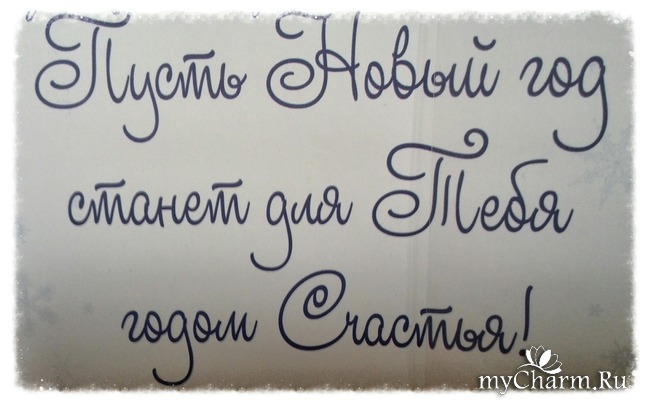 Пусть Новый год
станет для Тебя
годом Счастья!
myCharm.Ru